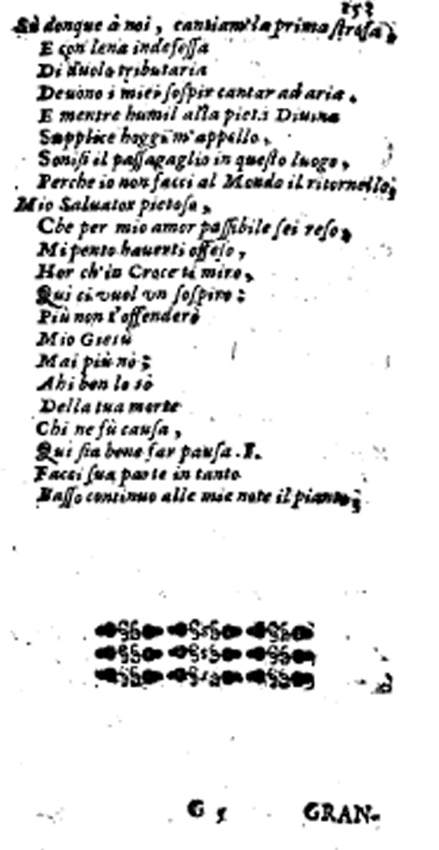 153
Sù donque à noi, cantiam la prima strofa;
E con lena indefessa
Di duolo tributaria
Deuono i miei sospir cantar ad aria.
E mentre humil alla pietà Diuina
Supplice hoggi m'appello,
Sonisi il passagaglio in questo luogo,
Perche io non facci al Mondo il ritornello;
Mio Saluator pietoso,
Che per mio amor passibile sei reso,
Mi pento hauerti offeso,
Hor ch'in Croce ti miro,
Qui ci vuol vn sospiro:
Più non t'offenderò
Mio Giesù
Mai più nò;
Ahi ben lo sò
Della tua morte
Chi ne fù causa,
Qui sia bene far pausa.
Facci sua parte in tanto
Basso continuo alle mie note il pianto;
G 5 GRAN-